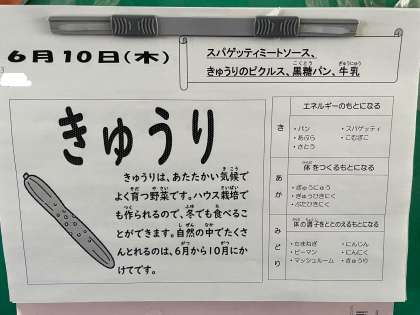 6月10日(木)
スパゲッティミートソース、
きゅうりのピクルス、黒糖パン、牛乳
きゅうり
きゅうりは、あたたかい気候で
よく育つ野菜です。ハウス栽培で
も作られるので、冬でも食べるこ
とができます。自然の中でたくさ
んとれるのは、6月から10月にか
けてです。
き
エネルギーのもとになる
・パン ・スパゲッティ
・あぶら ・こむぎこ
・さとう
あか
体をつくるもとになる
・ぎゅうにゅう
・ぎゅうひきにく
・ぶたひきにく
みどり
体の調子をととのえるもとになる
・たまねぎ ・にんじん
・ピーマン ・にんにく
・マッシュルーム ・きゅうり